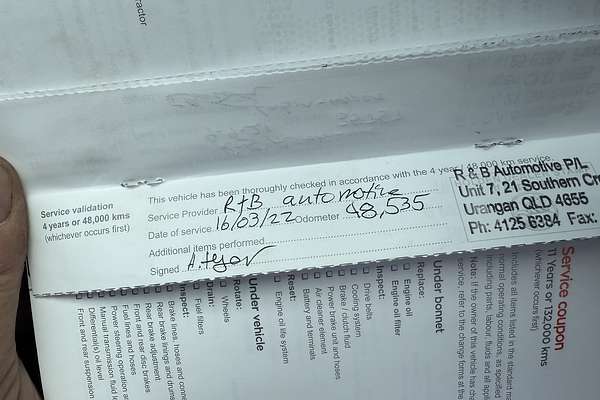 ractor
This vehicle has been thoroughly checked in accordance with the 4 year / 48,000 kms service.
Service validation
4 years or 48,000 kms
(whichever occurs first)
Service Provider R+B automotive
Date of service 16/03/22 Odometer 48,535
Additional items performed
Signed
R & B Automotive P/L
Unit 7, 21 Southern Cr
Urangan QLD 4655
Ph: 4125 6384 Fax:
Service coupon
11 Years or 132,000 kms
(whichever occurs first)
Includes all items listed in the standard
including parts, labour, fluids and all
normal operating conditions, as specified
Note: If the owner of this vehicle has
service, refer to the change forms at the
Under bonnet
Replace:
Engine oil
Engine oil filter
Inspect:
Drive belts
Cooling system
Brake / clutch fluid
Power brake unit and hoses
Air cleaner element
Battery and terminals
Reset:
Engine oil life system
Under vehicle
Rotate:
Wheels
Drain:
Fuel filters
Inspect:
Brake lines, hoses and
Rear brake linings and drums
Rear brake adjustment
Front and rear disc brakes
Fuel lines and hoses
Power steering operation
Manual transmission fluid
Differential(s) oil level
Front and rear suspension